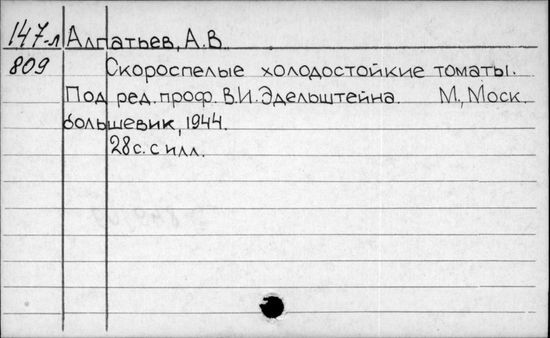 147-л Алпатьев, А.В
809 Скороспелые холодостойкие томаты.
Под ред. проф. В.И. Эдельштейна. М., Моск.
большевик, 1944.
28с. с илл.